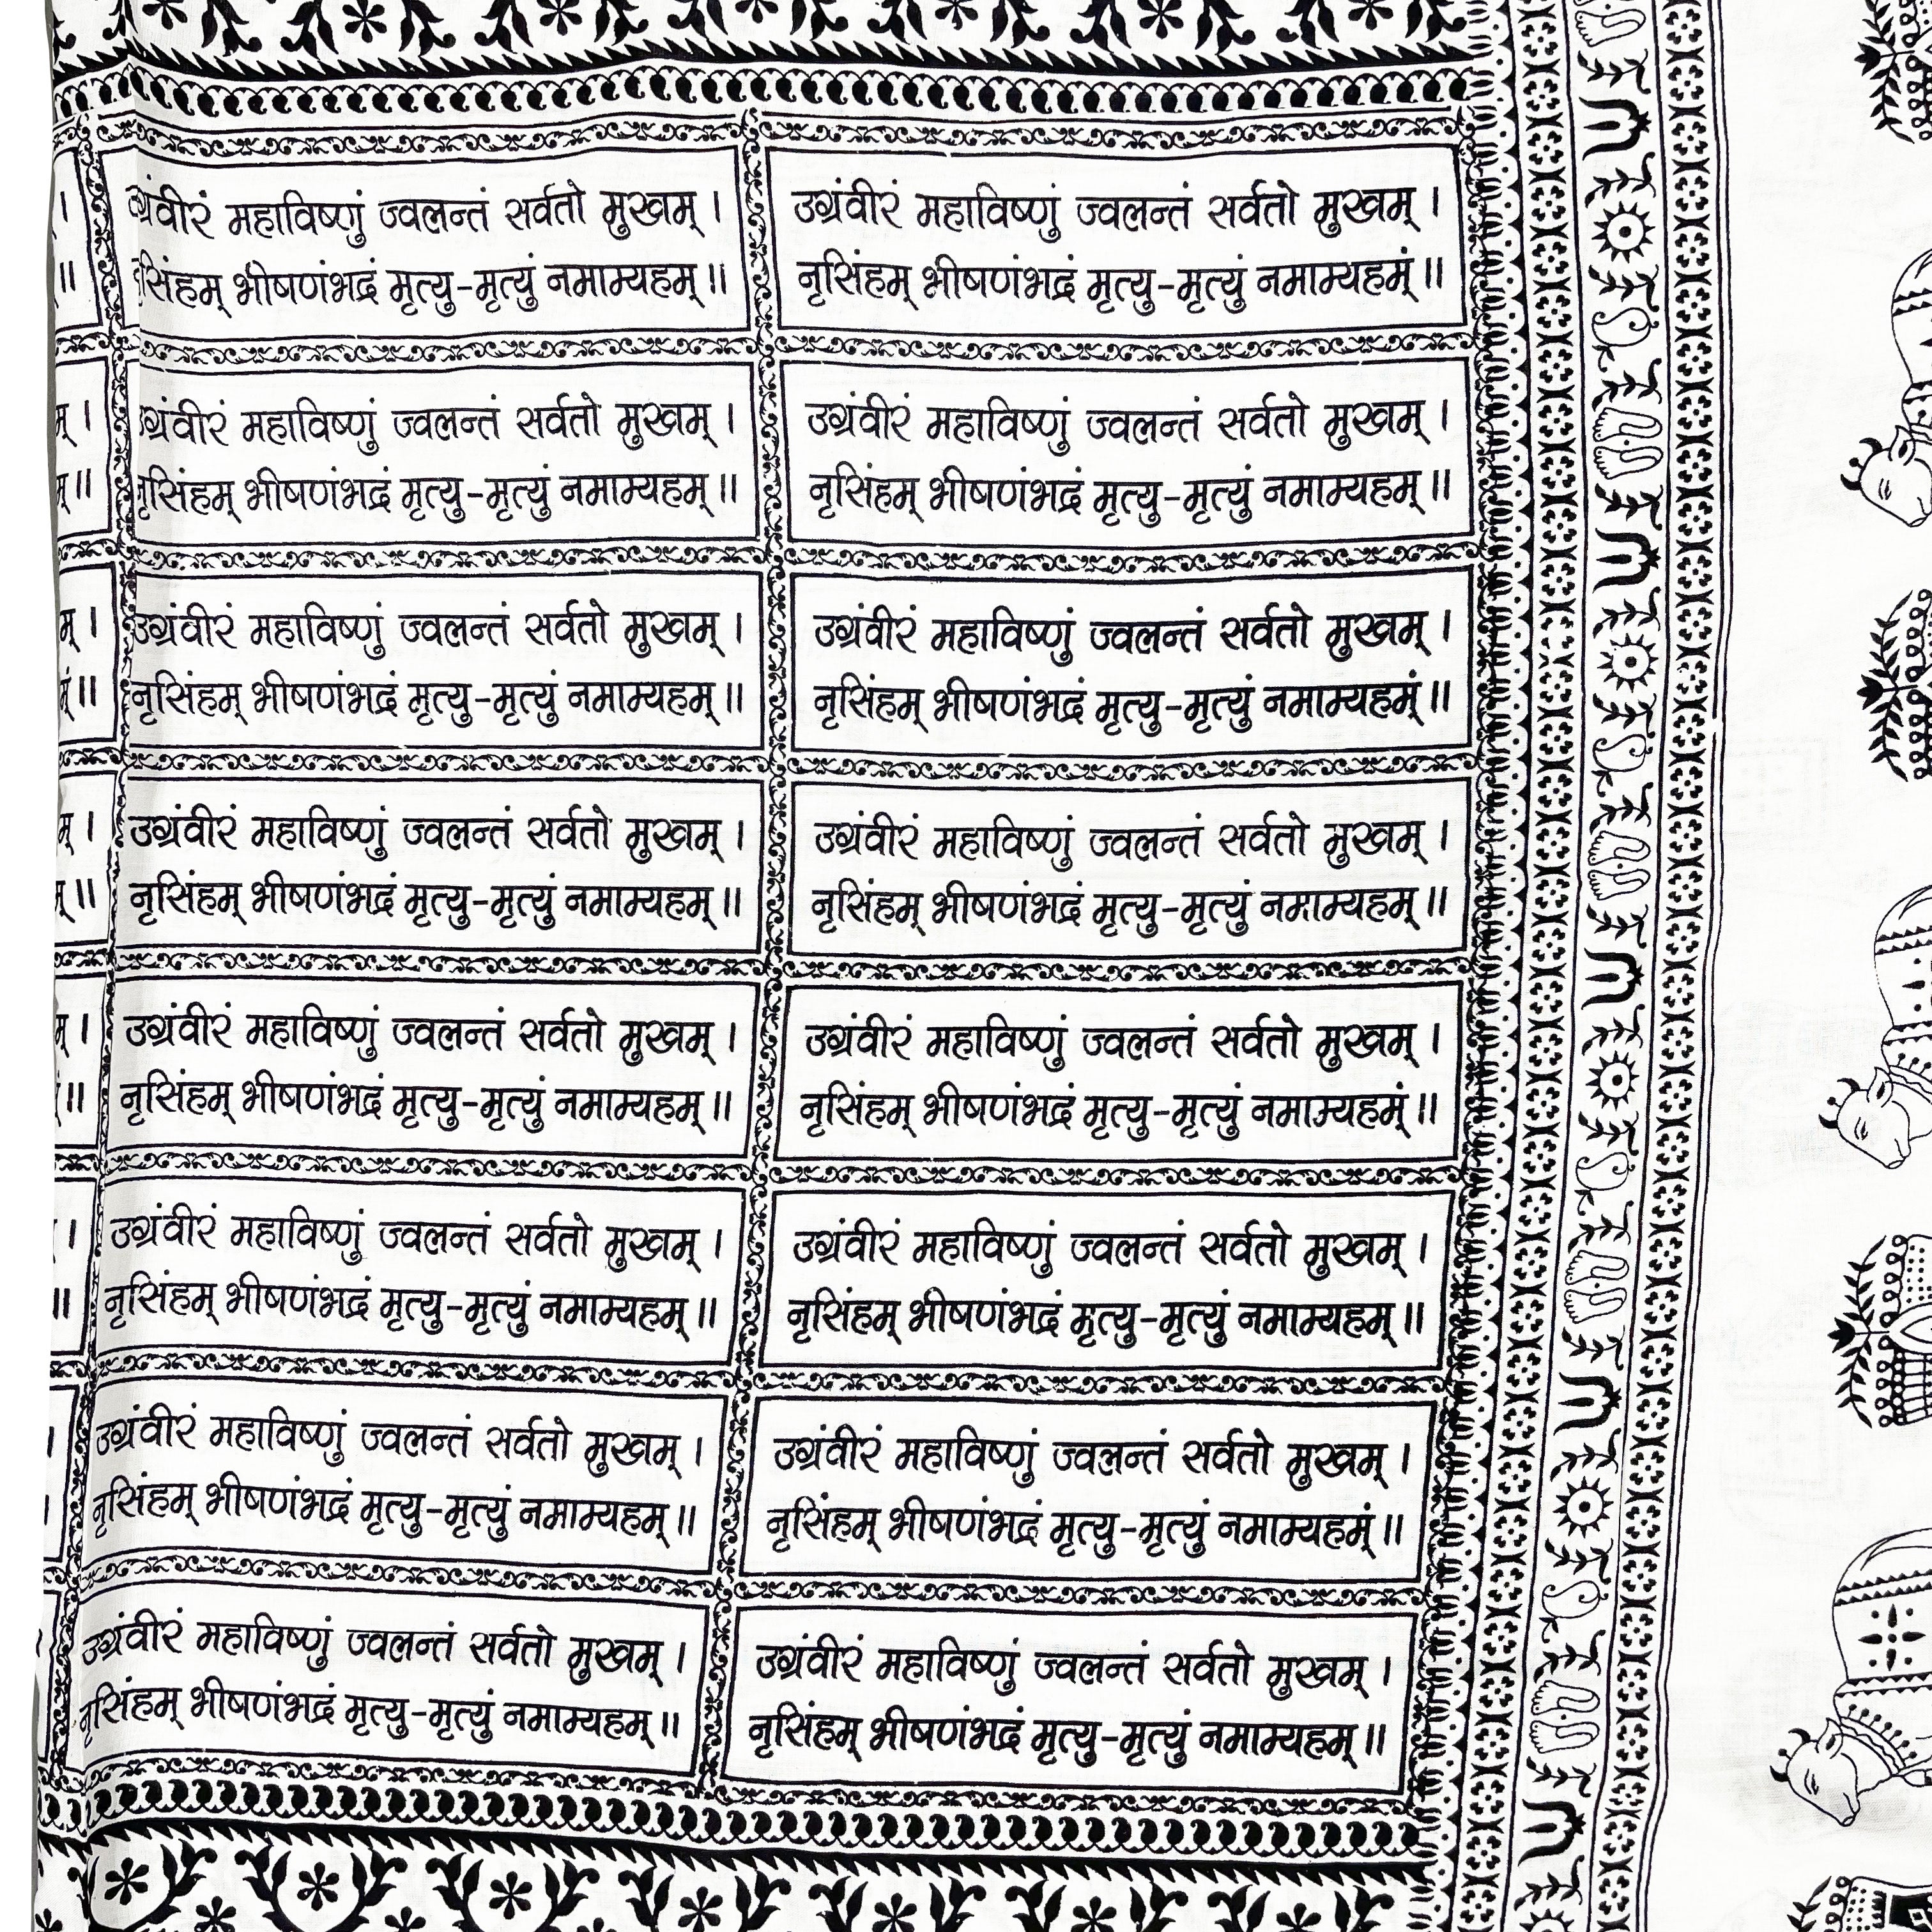 उग्रंवीरं महाविष्णुं ज्वलन्तं सर्वतो मुखम् ।
नृसिंहम् भीषणंभद्रं मृत्यु-मृत्युं नमाम्यहम् ॥
उग्रंवीरं महाविष्णुं ज्वलन्तं सर्वतो मुखम् ।
नृसिंहम् भीषणंभद्रं मृत्यु-मृत्युं नमाम्यहम्ं ॥
उग्रंवीरं महाविष्णुं ज्वलन्तं सर्वतो मुखम् ।
नृसिंहम् भीषणंभद्रं मृत्यु-मृत्युं नमाम्यहम् ॥
उग्रंवीरं महाविष्णुं ज्वलन्तं सर्वतो मुखम् ।
नृसिंहम् भीषणंभद्रं मृत्यु-मृत्युं नमाम्यहम् ॥
उग्रंवीरं महाविष्णुं ज्वलन्तं सर्वतो मुखम् ।
नृसिंहम् भीषणंभद्रं मृत्यु-मृत्युं नमाम्यहम् ॥
उग्रंवीरं महाविष्णुं ज्वलन्तं सर्वतो मुखम् ।
नृसिंहम् भीषणंभद्रं मृत्यु-मृत्युं नमाम्यहम्ं ॥
उग्रंवीरं महाविष्णुं ज्वलन्तं सर्वतो मुखम् ।
नृसिंहम् भीषणंभद्रं मृत्यु-मृत्युं नमाम्यहम् ॥
उग्रंवीरं महाविष्णुं ज्वलन्तं सर्वतो मुखम् ।
नृसिंहम् भीषणंभद्रं मृत्यु-मृत्युं नमाम्यहम् ॥
उग्रंवीरं महाविष्णुं ज्वलन्तं सर्वतो मुखम् ।
नृसिंहम् भीषणंभद्रं मृत्यु-मृत्युं नमाम्यहम् ॥
उग्रंवीरं महाविष्णुं ज्वलन्तं सर्वतो मुखम् ।
नृसिंहम् भीषणंभद्रं मृत्यु-मृत्युं नमाम्यहम्ं ॥
उग्रंवीरं महाविष्णुं ज्वलन्तं सर्वतो मुखम् ।
नृसिंहम् भीषणंभद्रं मृत्यु-मृत्युं नमाम्यहम् ॥
उग्रंवीरं महाविष्णुं ज्वलन्तं सर्वतो मुखम् ।
नृसिंहम् भीषणंभद्रं मृत्यु-मृत्युं नमाम्यहम् ॥
उग्रंवीरं महाविष्णुं ज्वलन्तं सर्वतो मुखम् ।
नृसिंहम् भीषणंभद्रं मृत्यु-मृत्युं नमाम्यहम् ॥
उग्रंवीरं महाविष्णुं ज्वलन्तं सर्वतो मुखम् ।
नृसिंहम् भीषणंभद्रं मृत्यु-मृत्युं नमाम्यहम्ं ॥
उग्रंवीरं महाविष्णुं ज्वलन्तं सर्वतो मुखम् ।
नृसिंहम् भीषणंभद्रं मृत्यु-मृत्युं नमाम्यहम् ॥
उग्रंवीरं महाविष्णुं ज्वलन्तं सर्वतो मुखम् ।
नृसिंहम् भीषणंभद्रं मृत्यु-मृत्युं नमाम्यहम् ॥